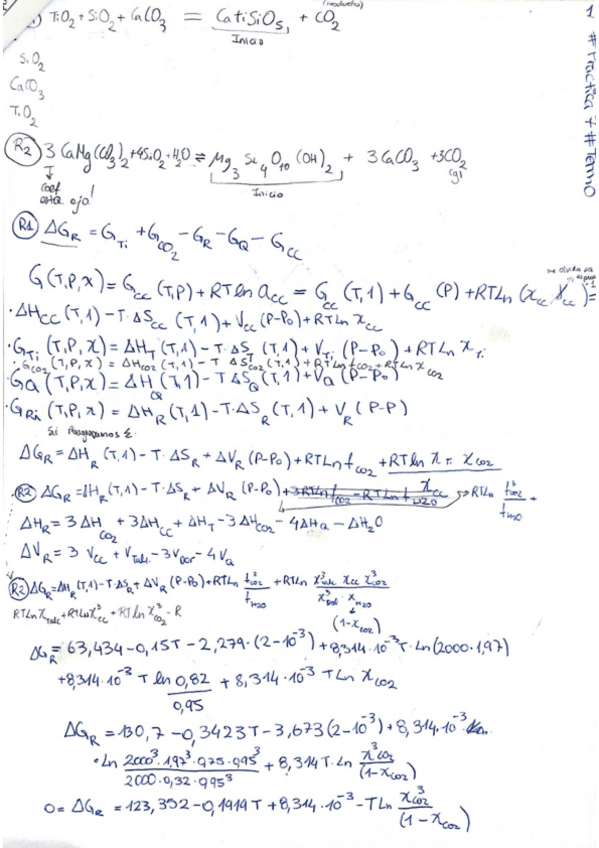 TiO2 + SiO2 + CaCO3 = CaTiSiO5 + CO2
Inicio
SiO2
CaCO3
TiO2
1 #Practica 7 #TermO
R2 3 CaMg(CO3)2 + 4SiO2 + H2O ⇌ Mg3 Si4 O10 (OH)2 + 3 CaCO3 + 3CO2 (g)
Inicio
↓
coef
esta ojo!
R1 ΔGR = GTi + GCO2 - GR - GQ - GCC
G(T,P,X) = Gcc (T,P) + RT ln acc = Gcc (T,1) + Gcc (P) + RTLn (xcc γcc) =
· ΔHcc (T,1) - T·ΔScc (T,1) + Vcc (P-P0) + RTLn xcc
· GTi (T,P,X) = ΔHT (T,1) - T·ΔST (T,1) + VTi (P-P0) + RTLn XTi
· GCO2 (T,P,X) = ΔHCO2 (T,1) - T ΔSCO2 (T,1) + RTLn fCO2 + RTLn xCO2
· GQ (T,P,X) = ΔHQ (T,1) - TΔSQ (T,1) + VQ (P-P0)
· GRi (T,P,X) = ΔHR (T,1) - T·ΔSR (T,1) + VR (P-P)
Si Reagrupamos Σ
ΔGR = ΔHR (T,1) - T·ΔSR + ΔVR (P-P0) + RTLn fCO2 + RT ln XTi XCO2
· R2 ΔGR = ΔHR (T,1) - T·ΔSR + ΔVR (P-P0) + → RTLn f³CO2 / fH2O +
ΔHR = 3ΔHCO2 + 3ΔHCC + ΔHT - 3ΔHCO2 - 4ΔHQ - ΔH2O
ΔVR = 3 Vcc + VTalc - 3VDol - 4VQ
R2 ΔGR = ΔHR (T,1) - T·ΔSR + ΔVR (P-P0) + RTLn f³CO2 / fH2O + RTLn XTalc X³CC X³CO2 / X³Dol · XH2O
↓
(1-XCO2)
RTLn XTalc + RTLn X³CC + RTLn X³CO2 - R
ΔGR = 63,434 - 0,15T - 2,279·(2-10⁻³) + 8,314·10⁻³ T·Ln(2000·1,97)
+ 8,314·10⁻³ T ln 0,82 / 0,95 + 8,314·10⁻³ TLn XCO2
ΔGR = 130,7 - 0,3423T - 3,673(2-10⁻³) + 8,314·10⁻³
· Ln 2000³·1,97³·0,75·0,95³ / 2000·0,32·0,95³ + 8,314T·Ln X³CO2 / (1-XCO2)
0 = ΔGR = 123,352 - 0,1919T + 8,314·10⁻³ - TLn X³CO2 / (1-XCO2)